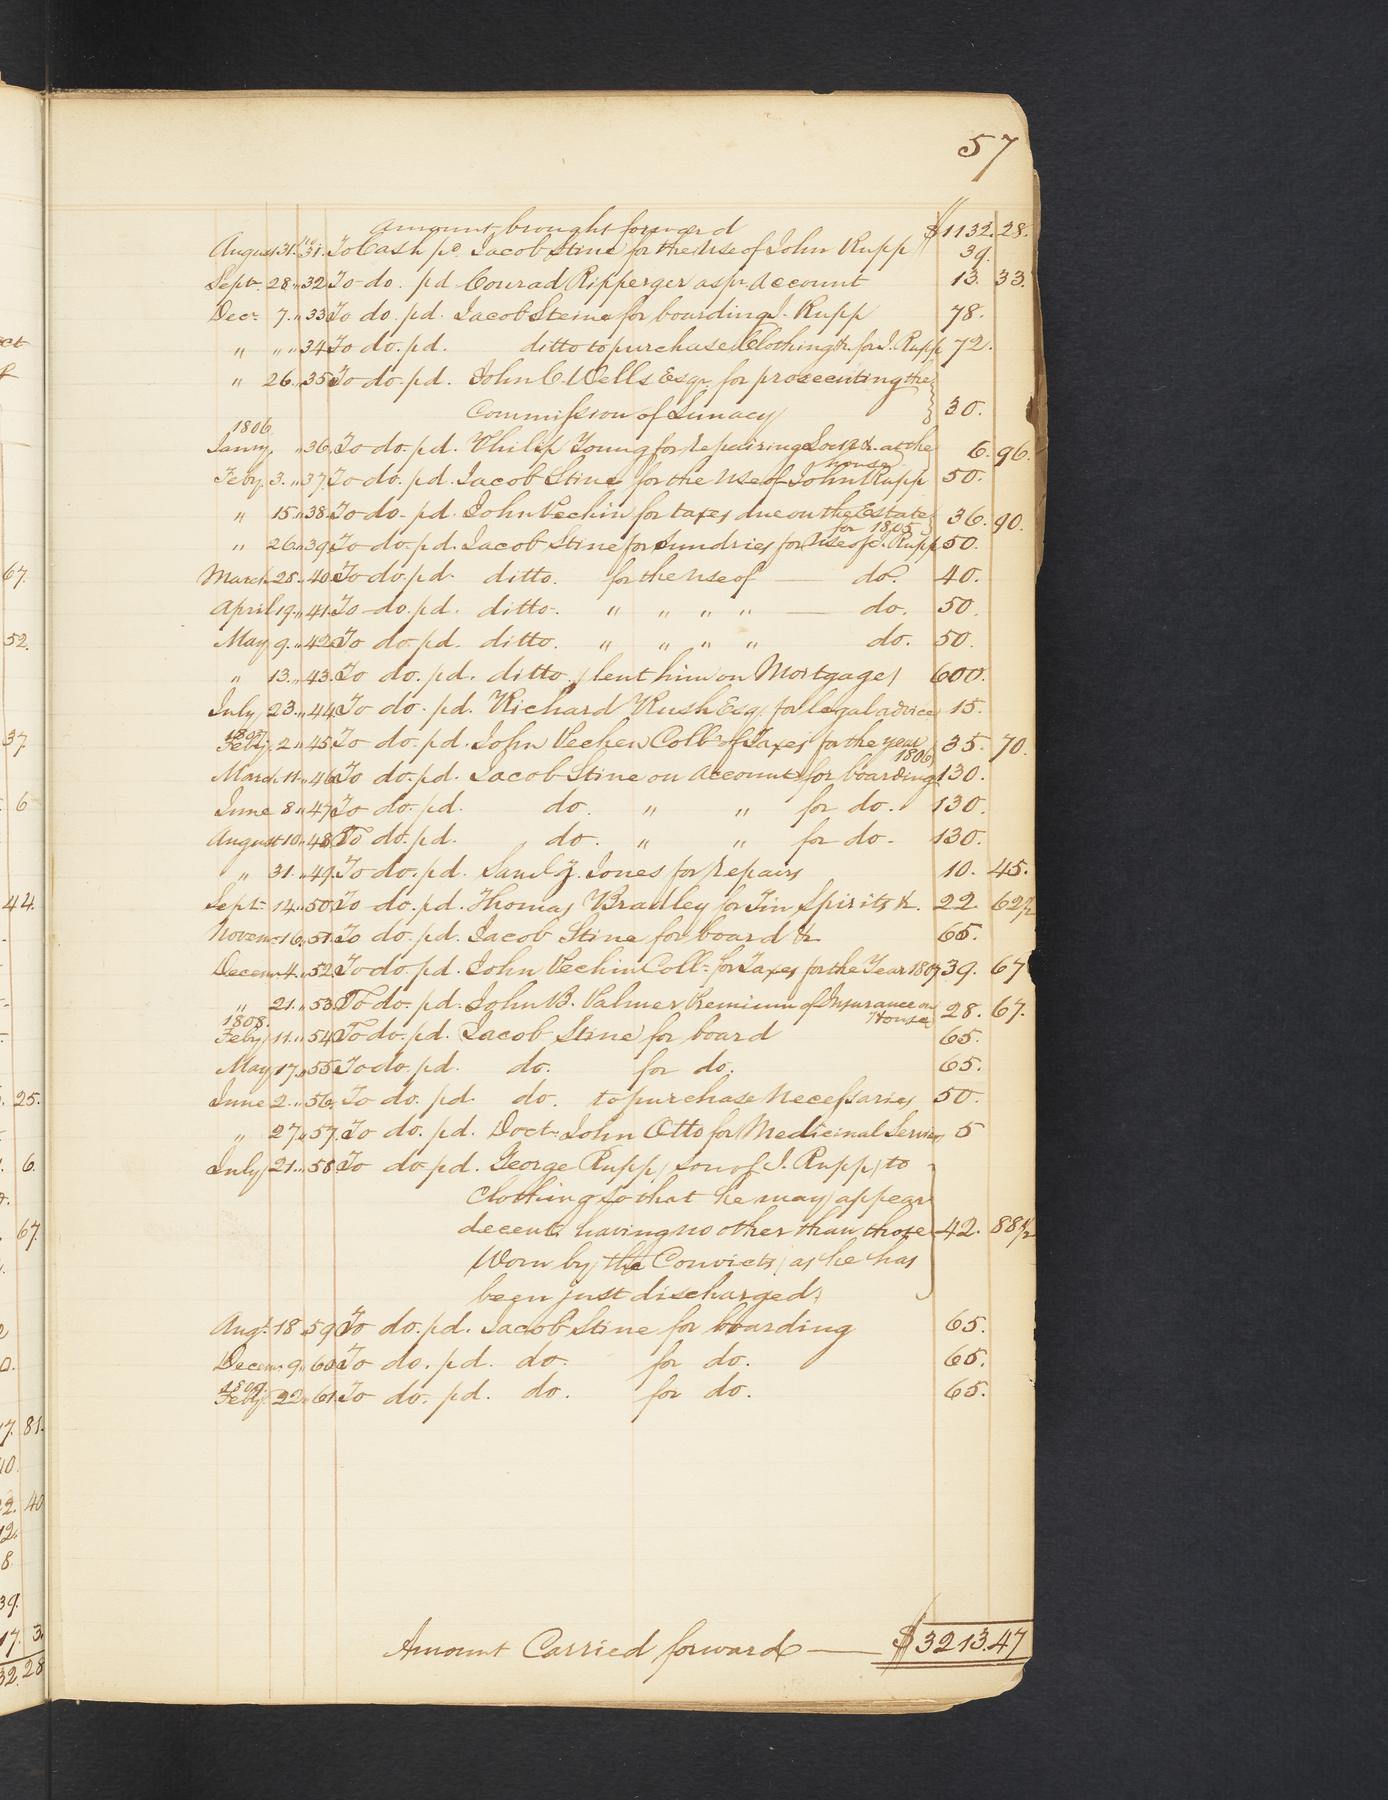 57
Amount brought forward $1132. 28.
August 31. No 31. To Cash pd. Jacob Stine for the use of John Rupp 39.
Septr. 28. " 32 To do. pd Conrad Ripperger as pr. Account 13. 33.
Decr. 7. " 33 To do. pd. Jacob Steine for boarding J. Rupp 78.
" " " 34 To do. pd. ditto to purchase Clothing &c. for J. Rupp 72.
" 26. " 35 To do. pd. John C. Wells Esqr. for prosecuting the
Commission of Lunacy 30.
1806.
Janry. " 36. To do. pd. Philip Young for repairing Locks &c. at the 6. 96.
house
Feby. 3. " 37. To do. pd. Jacob Stine for the use of John Rupp 50.
" 15. " 38. To do. pd. John Pechin for taxes due on the Estate 36. 90.
for 1805
" 26. " 39. To do. pd. Jacob Stine for Sundries for use of J. Rupp 50.
March 25. " 40. To do. pd. ditto. for the use of — do. 40.
April 19. " 41. To do. pd. ditto. " " " " — do. 50.
May 9. " 42. To do. pd. ditto. " " " " do. 50.
" 13. " 43. To do. pd. ditto. (lent him on Mortgage) 600.
July 23. " 44. To do. pd. Richard Rush Esq. for legal advice 15.
1807.
Feby. 2. " 45. To do. pd. John Pechen Collr. of Taxes for the year 35. 70.
1806
March 11. " 46. To do. pd. Jacob Stine on Account for boarding 130.
June 8. " 47. To do. pd. do. " " for do. 130.
August 10. " 48. To do. pd. do. " " for do. 130.
" 31. " 49. To do. pd. Saml. J. Jones for repairs 10. 45.
Septr. 14. " 50. To do. pd. Thomas Bradley for Tin Spirits &c. 22 62½
Novemr. 16. " 51. To do. pd. Jacob Stine for board &c 65.
Decemr. 4. " 52. To do. pd. John Pechin Collr. for Taxes for the Year 1807 39. 67
" 21. " 53. To do. pd. John B. Palmer Premium of Insurance on 28. 67.
House
1808.
Feby. 11. " 54. To do. pd. Jacob Stine for board 65.
May 17. " 55. To do. pd. do. for do. 65.
June 2. " 56. To do. pd. do. to purchase Necessaries 50.
" 27. " 57. To do. pd. Doctr. John Otto for Medicinal Services 5
July 21. " 58. To do. pd. George Rupp (son of J. Rupp) to
Clothing so that he may appear
decent, having no other than those 42. 88½
Worn by the Convicts, as he has
been just discharged.
Augt. 18. " 59. To do. pd. Jacob Stine for boarding 65.
Decemr. 9. " 60. To do. pd. do. for do. 65.
1809.
Feby. 22. " 61. To do. pd. do. for do. 65.
Amount Carried forward — $3213.47
67.
52.
37.
6
44.
25.
6.
67.
81.
40
39.
32. 28